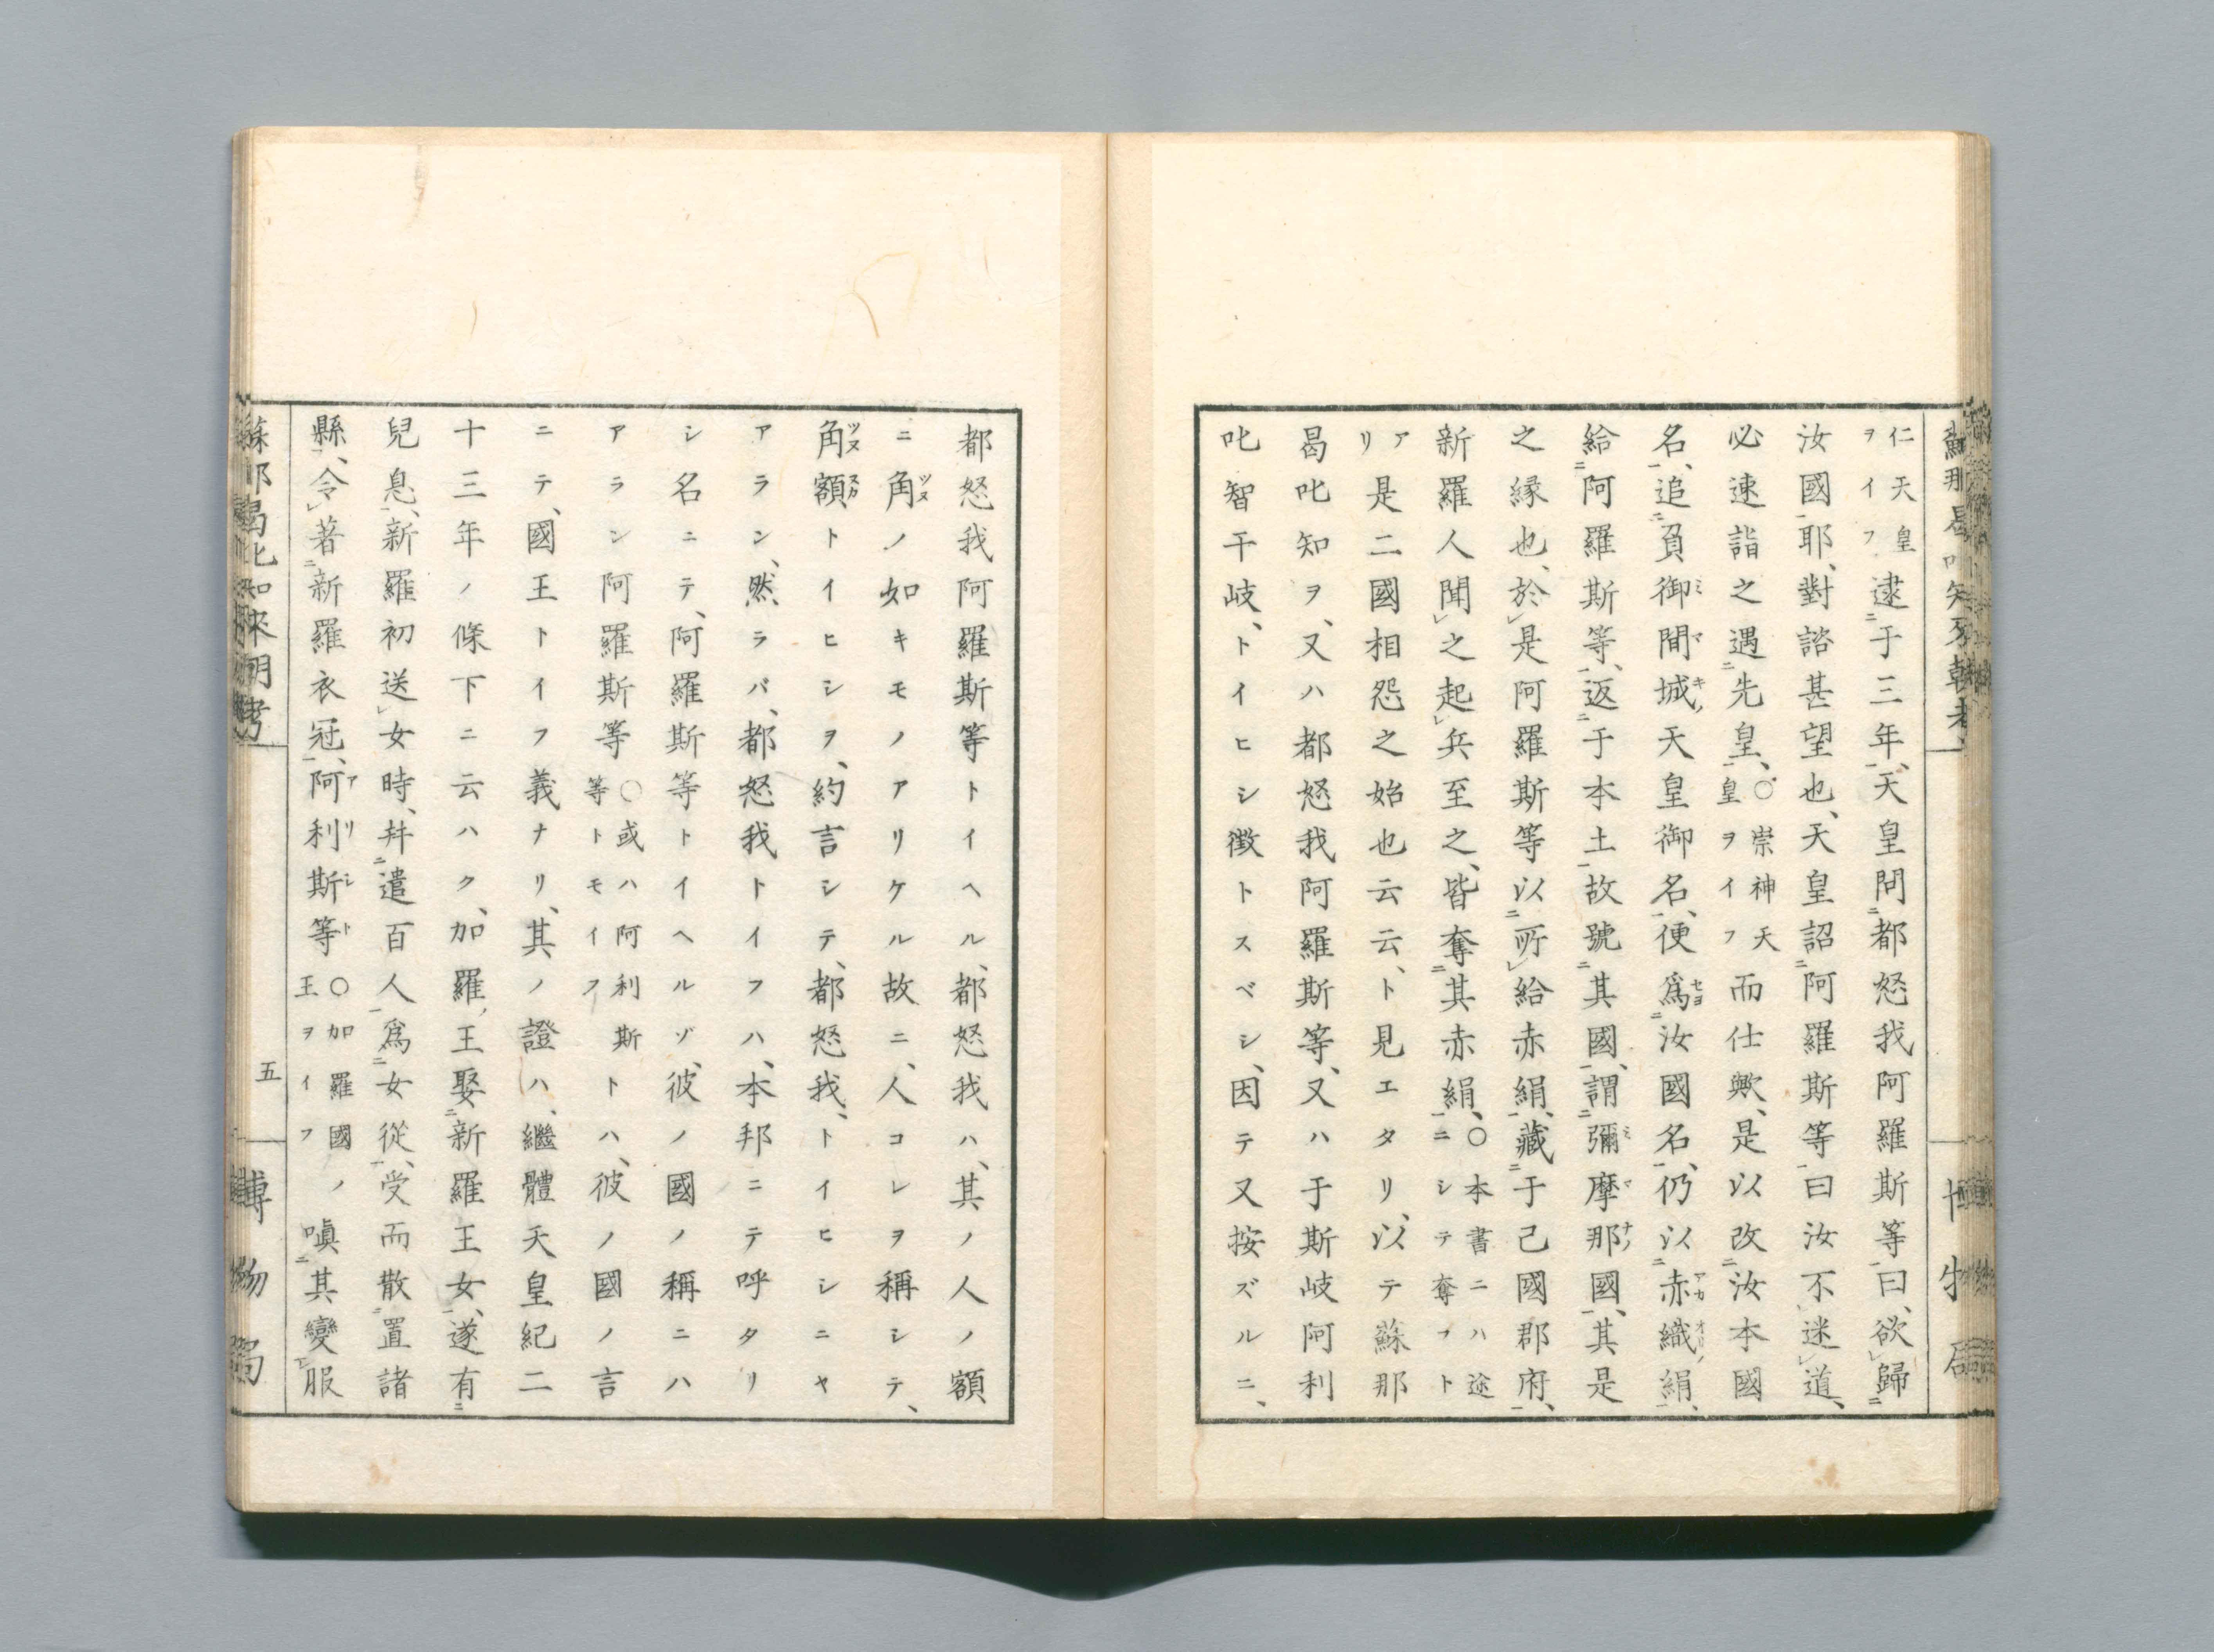 仁天皇ヲイフ逮于三年、天皇問都怒我阿羅斯等曰、欲歸
汝國耶、對諮甚望也、天皇詔阿羅斯等曰汝不迷道、
必速詣之遇先皇、○崇神天皇ヲイフ而仕歟、是以改汝本國
名、追負御間城天皇御名、便爲汝國名、仍以赤織絹、
給阿羅斯等、返于本土故號其國、謂彌摩那國、其是
之縁也、於是阿羅斯等以所給赤絹、藏于己國郡府、
新羅人聞之起兵至之、皆奪其赤絹、○本書ニハ途ニシテ奪フト
アリ是二國相怨之始也云云、ト見エタリ、以テ蘇那
曷叱知ヲ、又ハ都怒我阿羅斯等、又ハ于斯岐阿利
叱智干岐、トイヒシ徴トスベシ、因テ又按ズルニ、
都怒我阿羅斯等トイヘル、都怒我ハ、其ノ人ノ額
ニ角ノ如キモノアリケル故ニ、人コレヲ稱シテ、
角額トイヒシヲ、約言シテ、都怒我、トイヒシニヤ
アラン、然ラバ、都怒我トイフハ、本邦ニテ呼タリ
シ名ニテ、阿羅斯等トイヘルゾ、彼ノ國ノ稱ニハ
アラン阿羅斯等○或ハ阿利斯等トモイフトハ、彼ノ國ノ言
ニテ、國王トイフ義ナリ、其ノ證ハ、繼體天皇紀二
十三年ノ條下ニ云ハク、加羅王娶新羅王女、遂有
兒息、新羅初送女時、幷遣百人、爲女從、受而散置諸
縣、令著新羅衣冠、阿利斯等○加羅國ノ王ヲイフ嗔其變服
蘇那曷叱知來朝考
五
博物局